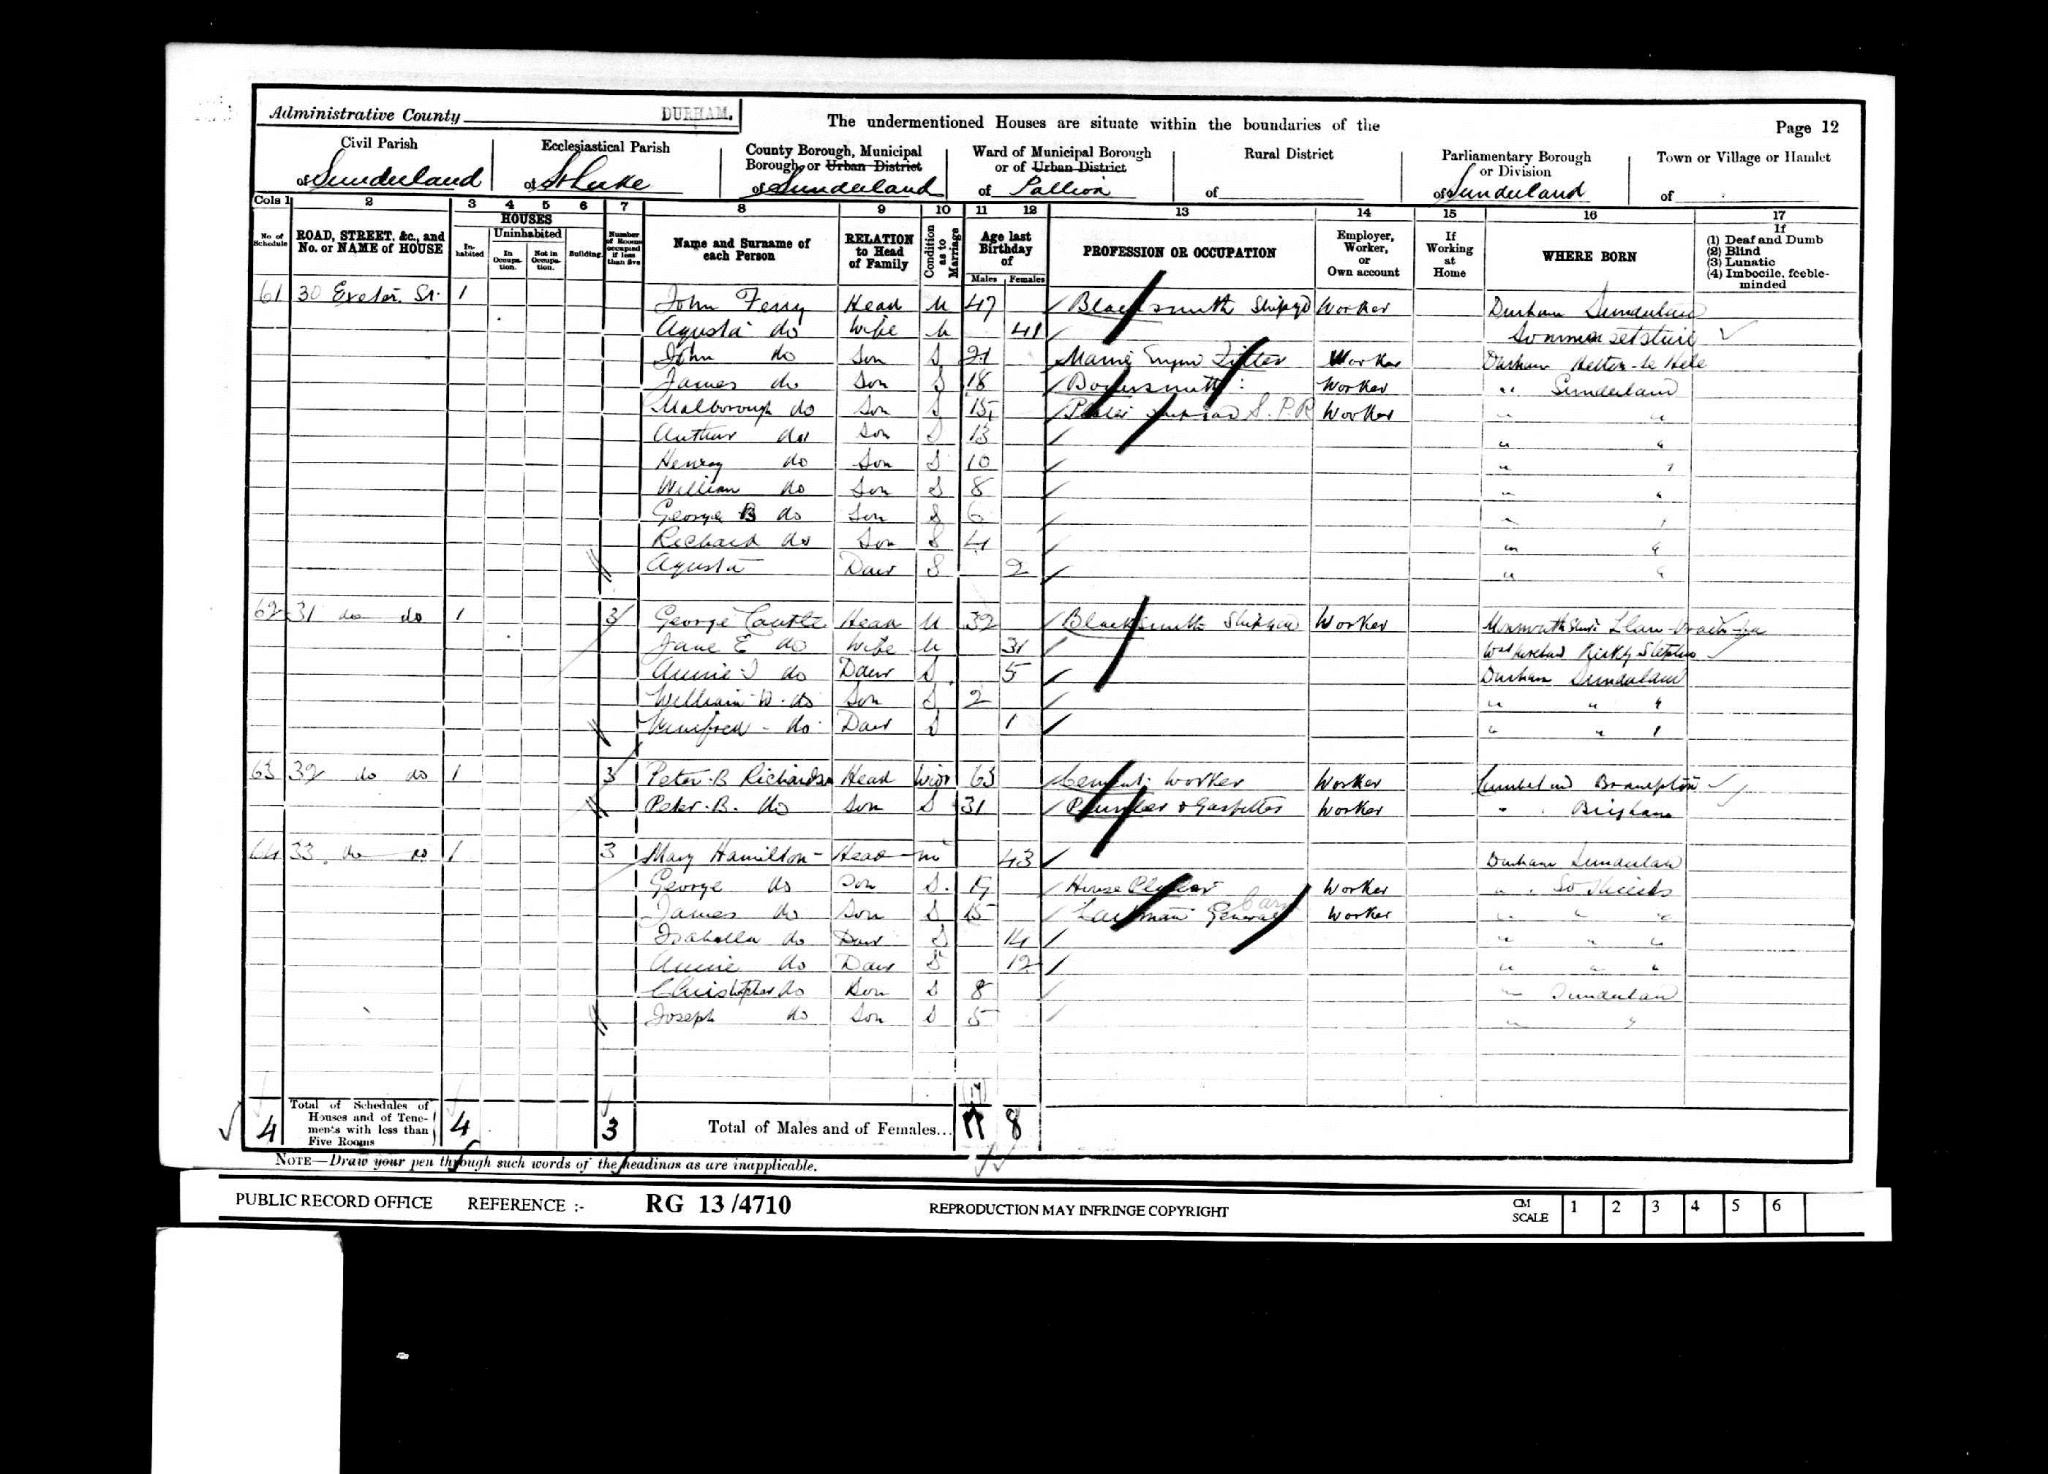 Administrative County DURHAM.
The undermentioned Houses are situate within the boundaries of the
Page 12
Civil Parish of Sunderland
Ecclesiastical Parish of St Luke
County Borough, Municipal Borough or Urban District of Sunderland
Ward of Municipal Borough or of Urban District of Pallion
Rural District of
Parliamentary Borough or Division of Sunderland
Town or Village or Hamlet of
Cols 1 2 3 4 5 6 7 8 9 10 11 12 13 14 15 16 17
No of Schedule
ROAD, STREET, &c., and No. or NAME of HOUSE
HOUSES
Inhabited
Uninhabited
In Occupation.
Not in Occupation.
Building.
Number of Rooms occupied if less than five
Name and Surname of each Person
RELATION to Head of Family
Condition as to Marriage
Age last Birthday of
Males Females
PROFESSION OR OCCUPATION
Employer, Worker, or Own account
If Working at Home
WHERE BORN
If
(1) Deaf and Dumb
(2) Blind
(3) Lunatic
(4) Imbecile, feeble-minded
61 30 Exeter St. 1 John Ferry Head M 47 Blacksmith Shipyd Worker Durham Sunderland
Agusta do Wife M 41 Sommersetshire
John do Son S 21 Marine Engin Fitter Worker Durham Hetton-le-Hole
James do Son S 18 Worker " Sunderland
Malborough do Son S 15 Worker " "
Arthur do Son S 13 " "
Henry do Son S 10 " "
William do Son S 8 " "
George B do Son S 6 " "
Richard do Son S 4 " "
Agusta Daur S 2 " "
62 31 do do 1 3 George Head M 32 Blacksmith Shipyard Worker Monmouthshire
Jane E do Wife M 31
Annie J do Daur S 5 Durham Sunderland
William W. do Son S 2 " " "
Winifred do Daur S 1 " " "
63 32 do do 1 3 Peter B Richardson Head Widr 63 Cement Worker Worker Cumberland Brampton
Peter B. do Son S 31 Plumber & Gasfitter Worker " Brigham
64 33 do do 1 3 Mary Hamilton Head M 43 Durham Sunderland
George do Son S House Worker " So Shields
James do Son S 15 General Worker " " "
Isabella do Daur S 14 " " "
Annie do Daur S 12 " " "
Christopher do Son S 8 " Sunderland
Joseph do Son S 5 " "
4 Total of Schedules of Houses and of Tenements with less than Five Rooms 4 3 Total of Males and of Females... 17 8
NOTE—Draw your pen through such words of the headings as are inapplicable.
PUBLIC RECORD OFFICE REFERENCE :- RG 13/4710 REPRODUCTION MAY INFRINGE COPYRIGHT CM SCALE 1 2 3 4 5 6